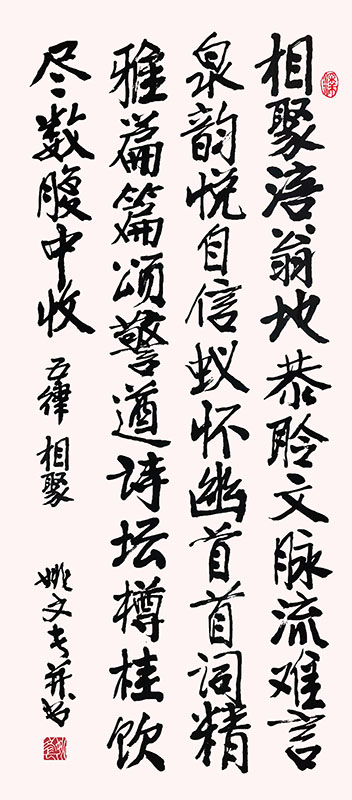 相聚涪翁地恭聆文脉流难言
泉韵悦自信蚁怀幽首首词精
雅篇篇颂警遒诗坛樽桂饮
尽数腹中收
五律 相聚
姚文并书